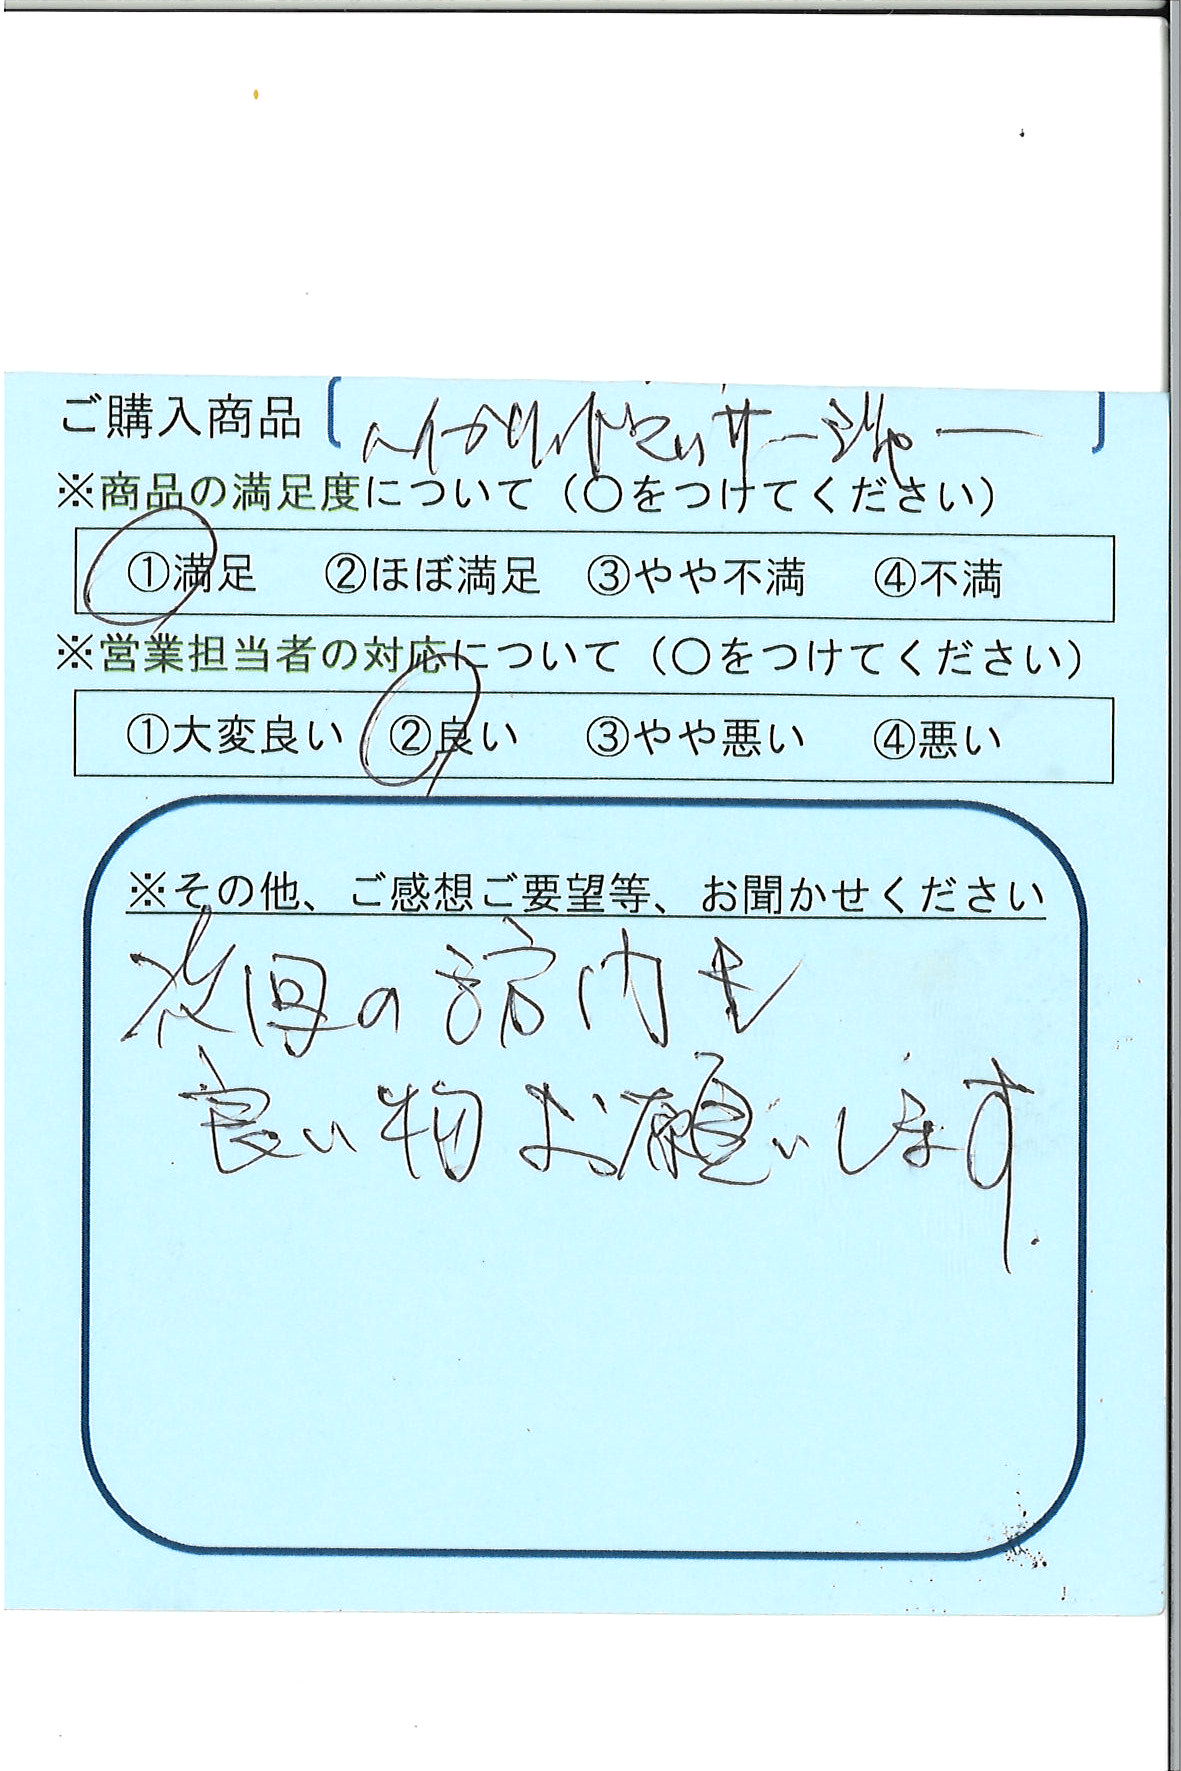 ご購入商品
※商品の満足度について（○をつけてください）
①満足 ②ほぼ満足 ③やや不満 ④不満
※営業担当者の対応について（○をつけてください）
①大変良い ②良い ③やや悪い ④悪い
※その他、ご感想ご要望等、お聞かせください
次回の訪内も
良い物お願いします.